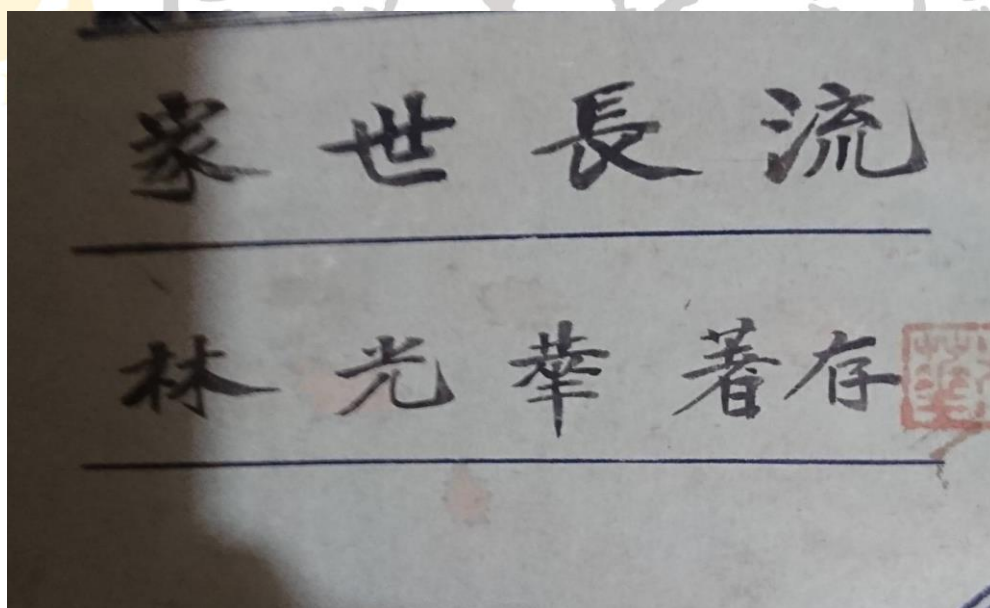 家世長流
林光華著存